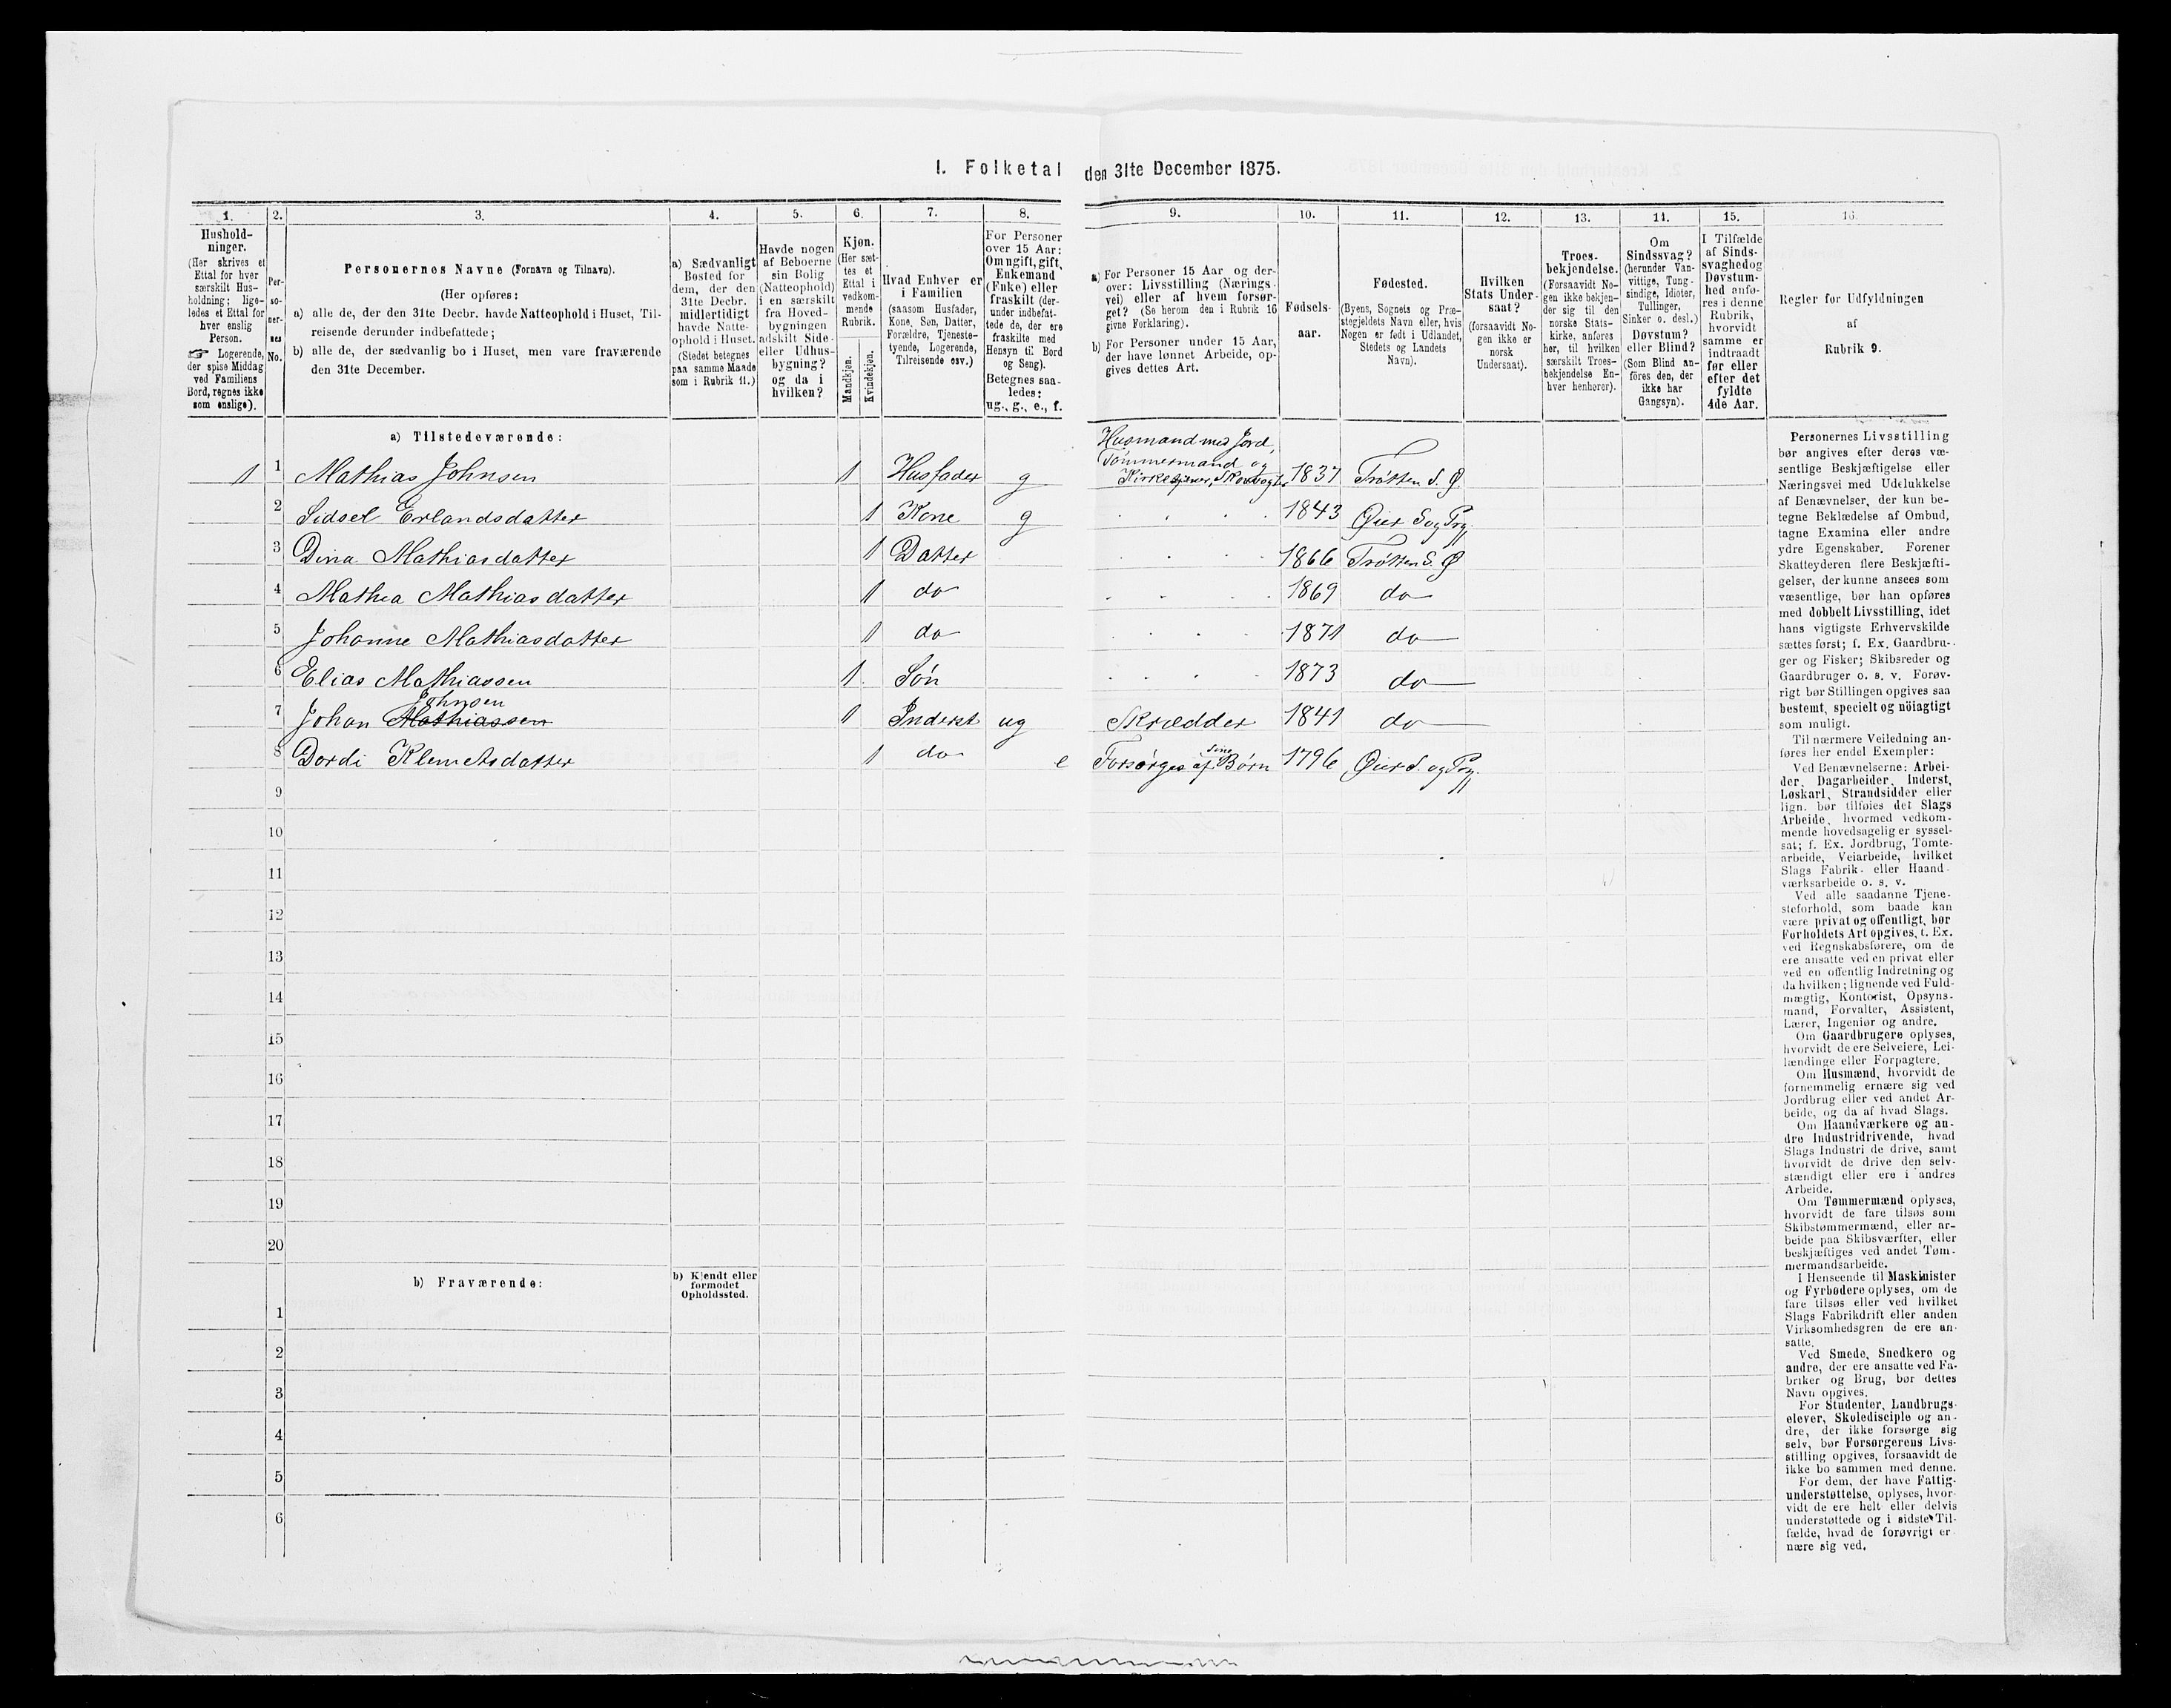 I. Folketal den 31te December 1875.
1. 2. 3. 4. 5. 6. 7. 8. 9. 10. 11. 12. 13. 14. 15. 16.
Hushold-
ninger.
(Her skrives et
Ettal for hver
særskilt Hus-
holdning; lige-
ledes et Ettal for
hver enslig
Person.
☞ Logerende,
der spise Middag
ved Familiens
Bord, regnes ikke
som enslige).
Per-
so-
ner-
nes
No.
Personernes Navne (Fornavn og Tilnavn).
(Her opføres:
a) alle de, der den 31te Decbr. havde Natteophold i Huset, Til-
reisende derunder indbefattede;
b) alle de, der sædvanlig bo i Huset, men vare fraværende
den 31te December.
a) Sædvanligt
Bosted for
dem, der den
31te Decbr.
midlertidigt
havde Natte-
ophold i Huset.
(Stedet betegnes
paa samme Maade
som i Rubrik 11.)
Havde nogen
af Beboerne
sin Bolig
(Natteophold)
i en særskilt
fra Hoved-
bygningen
adskilt Side-
eller Udhus-
bygning?
og da i
hvilken?
Kjøn.
(Her sæt-
tes et
Ettal i
vedkom-
mende
Rubrik.
Mandkjøn.
Kvindekjøn.
Hvad Enhver er
i Familien
(saasom Husfader,
Kone, Søn, Datter,
Forældre, Tjeneste-
tyende, Logerende,
Tilreisende osv.)
For Personer
over 15 Aar:
Om ugift, gift,
Enkemand
(Enke) eller
fraskilt (der-
under indbefat-
tede de, der ere
fraskilte med
Hensyn til Bord
og Seng).
Betegnes saa-
ledes:
ug., g., e., f.
a) For Personer 15 Aar og der-
over: Livsstilling (Nærings-
vei) eller af hvem forsør-
get? (Se herom den i Rubrik 16
givne Forklaring).
b) For Personer under 15 Aar,
der have lønnet Arbeide, op-
gives dettes Art.
Fødsels-
aar.
Fødested.
(Byens, Sognets og Præ-
stegjeldets Navn eller, hvis
Nogen er født i Udlandet,
Stedets og Landets
Navn).
Hvilken
Stats Under-
saat?
(forsaavidt No-
gen ikke er
norsk
Undersaat).
Troes-
bekjendelse.
(Forsaavidt No-
gen ikke bekjen-
der sig til den
norske Stats-
kirke, anføres
her, til hvilken
særskilt Troes-
bekjendelse En-
hver henhører).
Om
Sindssvag?
(herunder Van-
vittige, Tung-
sindige, Idioter,
Tullinger,
Sinker o. desl.)
Døvstum?
eller Blind?
(Som Blind an-
føres den, der
ikke har
Gangsyn).
I Tilfælde
af Sinds-
svaghed og
Døvstum-
hed anfø-
res i denne
Rubrik,
hvorvidt
samme er
indtraadt
før eller
efter det
fyldte
4de Aar.
Regler for Udfyldningen
af
Rubrik 9.
a) Tilstedeværende:
Husmand med Jord,
Tømmermand og
1 1 Mathias Johnsen 1 Husfader g 1837 Trøtten S. Ø
2 Sidsel Erlandsdatter 1 Kone g 1843 Øier S og Prg.
3 Dina Mathiasdatter 1 Datter 1866 Trøtten S. Ø
4 Mathea Mathiasdatter 1 do 1869 do
5 Johanne Mathiasdatter 1 do 1871 do
6 Elias Mathiassen 1 Søn 1873 do
Johnsen
7 Johan Mathiassen 1 Inderst ug Skrædder 1841 do
sine
8 Dordi Klemetsdatter 1 do e Forsørges af Børn 1796 Øier S. og Prg.
9
10
11
12
13
14
15
16
17
18
19
20
b) Fraværende:
b) Kjendt eller
formodet
Opholdssted.
1
2
3
4
5
6
Personernes Livsstilling
bør angives efter deres væ-
sentlige Beskjæftigelse eller
Næringsvei med Udelukkelse
af Benævnelser, der kun be-
tegne Beklædelse af Ombud,
tagne Examina eller andre
ydre Egenskaber. Forener
Skatteyderen flere Beskjæfti-
gelser, der kunne ansees som
væsentlige, bør han opføres
med dobbelt Livsstilling, idet
hans vigtigste Erhvervskilde
sættes først; f. Ex. Gaardbru-
ger og Fisker; Skibsreder og
Gaardbruger o. s. v. Forøv-
rigt bør Stillingen opgives saa
bestemt, specielt og nöiagtigt
som muligt.
Til nærmere Veiledning an-
føres her endel Exempler:
Ved Benævnelserne: Arbei-
der, Dagarbeider, Inderst,
Løskarl, Strandsidder eller
lign. bør tilføies det Slags
Arbeide, hvormed vedkom-
mende hovedsagelig er syssel-
sat; f. Ex. Jordbrug, Tomte-
arbeide, Veiarbeide, hvilket
Slags Fabrik- eller Haand-
værksarbeide o. s. v.
Ved alle saadanne Tjene-
steforhold, som baade kan
være privat og offentligt, bør
Forholdets Art opgives, t. Ex.
ved Regnskabsførere, om de
ere ansatte ved en privat eller
ved en offentlig Indretning og
da hvilken; lignende ved Fuld-
mægtig, Kontorist, Opsyns-
mand, Forvalter, Assistent,
Lærer, Ingeniør og andre.
Om Gaardbrugere oplyses,
hvorvidt de ere Selveiere, Lei-
lændinge eller Forpagtere.
Om Husmænd, hvorvidt de
fornemmelig ernære sig ved
Jordbrug eller ved andet Ar-
beide, og da af hvad Slags.
Om Haandværkere og an-
dre Industridrivende, hvad
Slags Industri de drive, samt
hvorvidt de drive den selv-
stændigt eller ere i andres
Arbeide.
Om Tømmermænd oplyses,
hvorvidt de fare tilsøs som
Skibstømmermænd, eller ar-
beide paa Skibsværfter, eller
beskjæftiges ved andet Tøm-
mermandsarbeide.
I Henseende til Maskinister
og Fyrbødere oplyses, om de
fare tilsøs eller ved hvilket
Slags Fabrikdrift eller anden
Virksomhedsgren de ere an-
satte.
Ved Smede, Snedkere og
andre, der ere ansatte ved Fa-
briker og Brug, bør dettes
Navn opgives.
For Studenter, Landbrugs-
elever, Skoledisciple og an-
dre, der ikke forsørge sig
selv, bør Forsørgerens Livs-
stilling opgives, forsaavidt de
ikke bo sammen med denne.
For dem, der have Fattig-
understøttelse, oplyses, hvor-
vidt de ere helt eller delvis
understøttede og i sidste Til-
fælde, hvad de forøvrigt er-
nære sig ved.